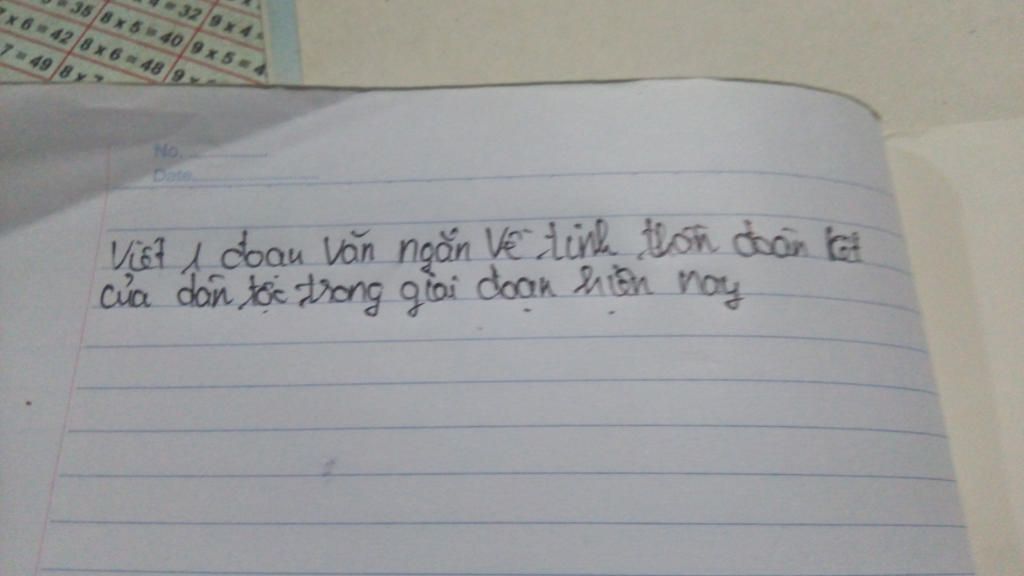 5 = 35
4 = 32
9 x 4
7 x 6 = 42
8 x 5 = 40
9 x 5 = 4
7 = 49
8 x 6 = 48
8 x
9 x
No.
Date
Viết 1 đoạn văn ngắn về tinh thần đoàn kết
của dân tộc trong giai đoạn hiện nay